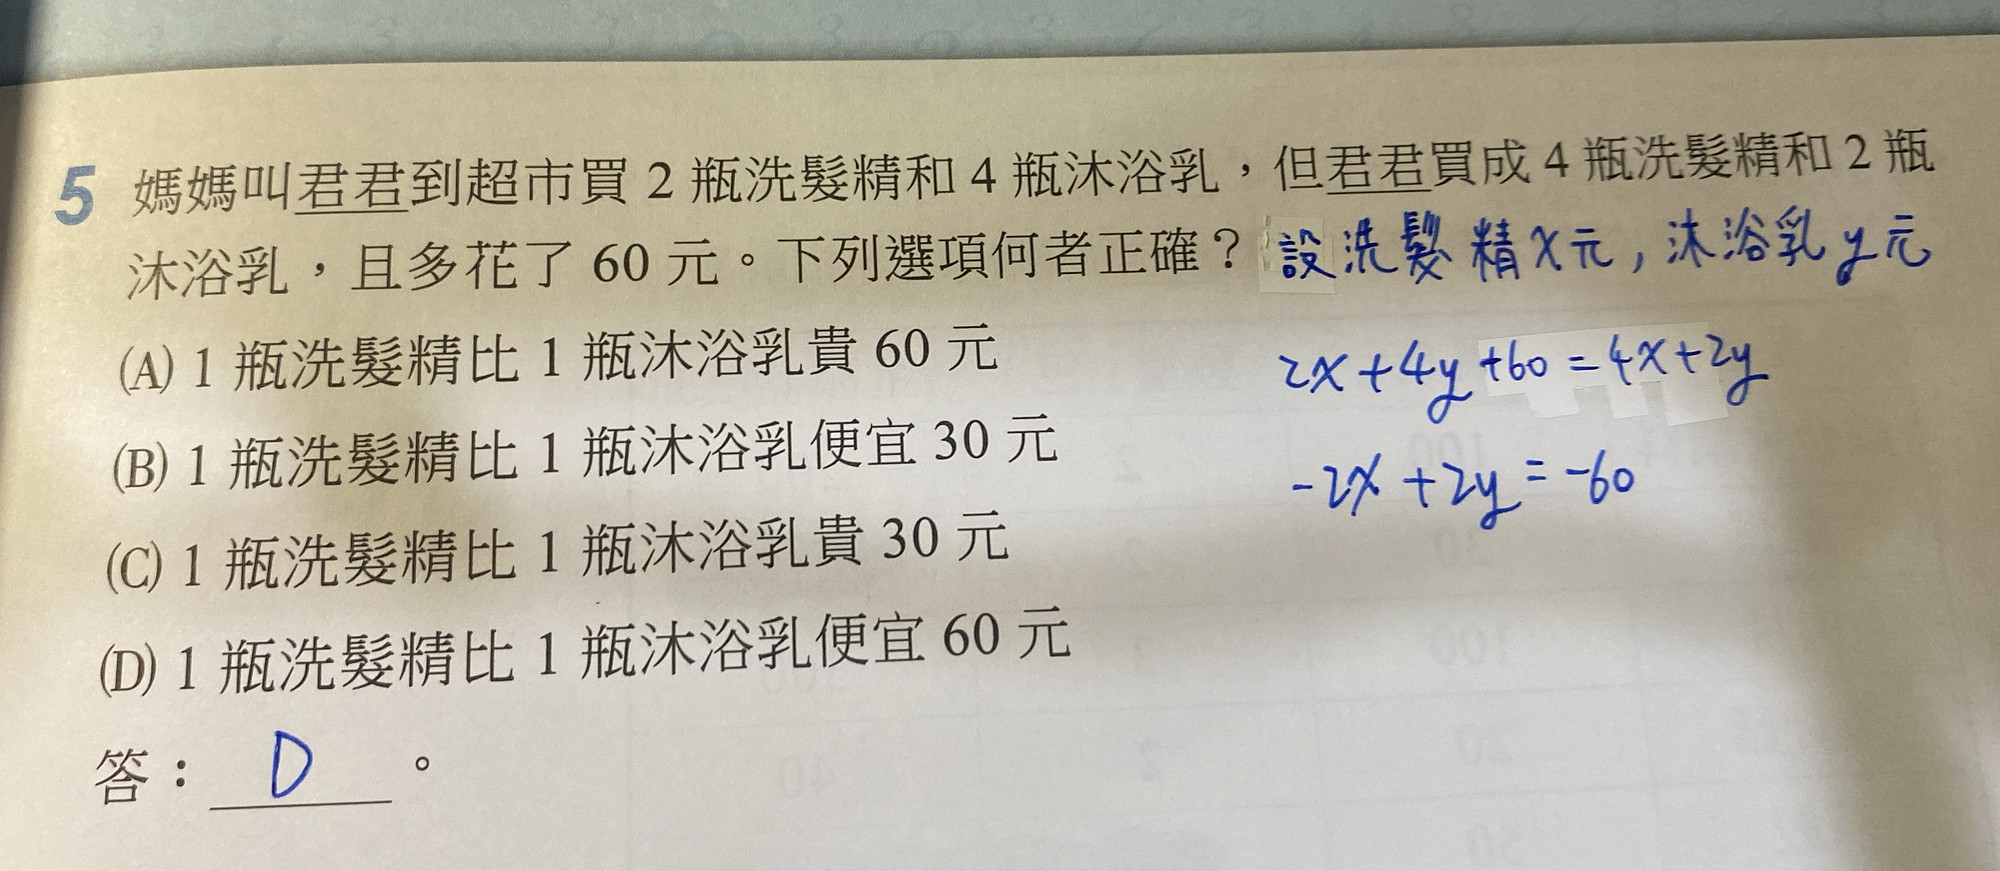 5 媽媽叫君君到超市買 2 瓶洗髮精和 4 瓶沐浴乳，但君君買成 4 瓶洗髮精和 2 瓶
沐浴乳，且多花了 60 元。下列選項何者正確？ 設洗髮精x元，沐浴乳y元
(A) 1 瓶洗髮精比 1 瓶沐浴乳貴 60 元
2x+4y+60=4x+2y
(B) 1 瓶洗髮精比 1 瓶沐浴乳便宜 30 元
-2x+2y=-60
(C) 1 瓶洗髮精比 1 瓶沐浴乳貴 30 元
(D) 1 瓶洗髮精比 1 瓶沐浴乳便宜 60 元
答：D。